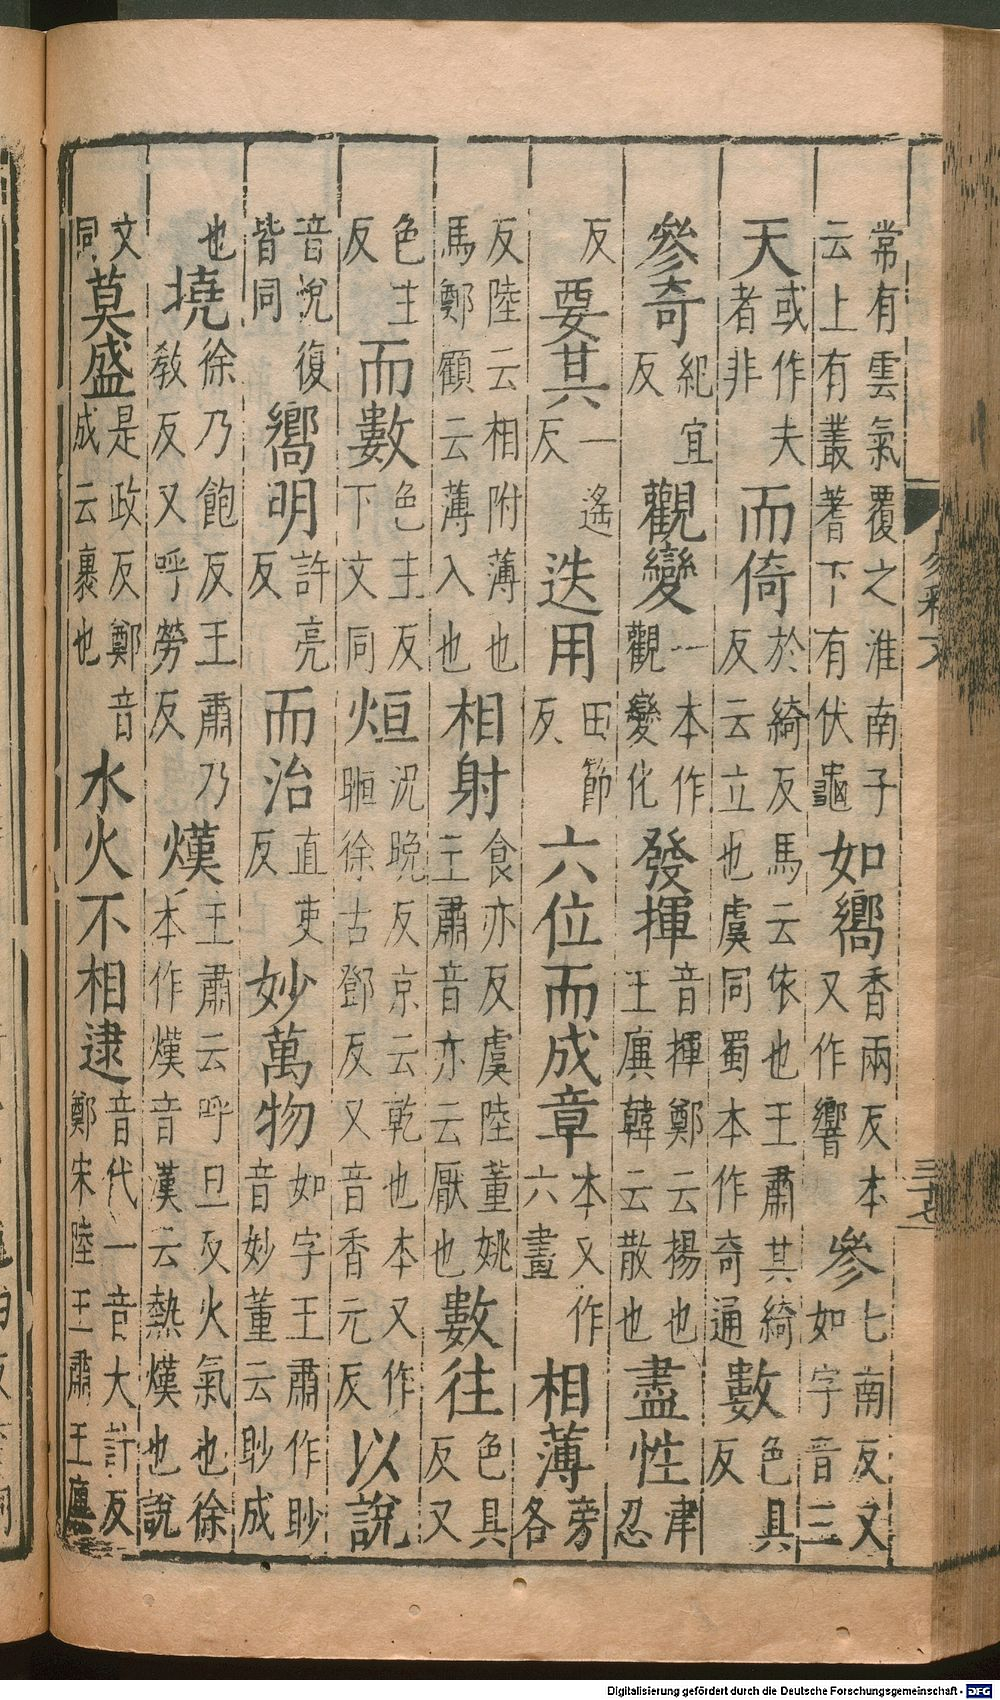 常有雲氣覆之淮南子云上有叢蓍下有伏龜如嚮香兩反本又作響參七南反又如字音三
天或作夫者非而倚於綺反馬云依也王肅其綺反云立也虞同蜀本作奇通數色具反
參奇紀宜反觀變一本作觀變化發揮音揮鄭云揚也王廙韓云散也盡性津忍
反要其一遙反迭用田節反六位而成章本又作六畫相薄旁各
反陸云相附薄也馬鄭顧云薄入也相射食亦反虞陸董姚王肅音亦云厭也數往色具反又
色主反而數色主反下文同烜況晚反京云乾也本又作晅徐古鄧反又音香元反以說
音悅復皆同嚮明許亮反而治直吏反妙萬物如字王肅作眇音妙董云眇成
也撓徐乃飽反王肅乃教反又呼勞反熯王肅云呼旦反火氣也徐本作熯音漢云熱熯也說
文同莫盛是政反鄭音成云裹也水火不相逮音代一音大計反鄭宋陸王肅王廙
三十七
Digitalisierung gefördert durch die Deutsche Forschungsgemeinschaft - DFG